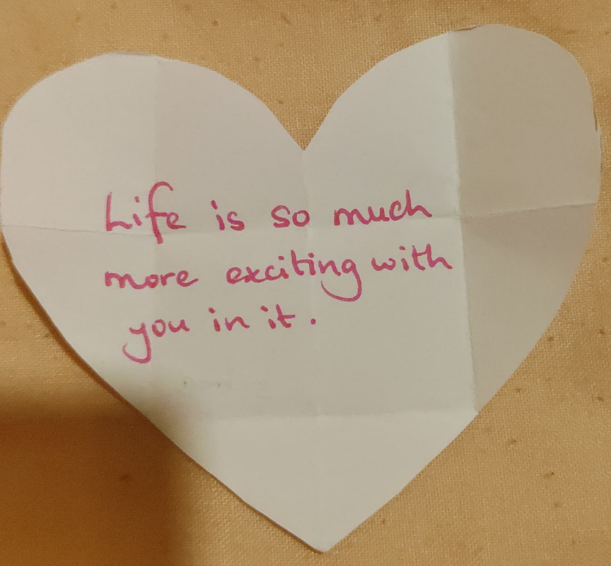 Life is so much
more exciting with
you in it.